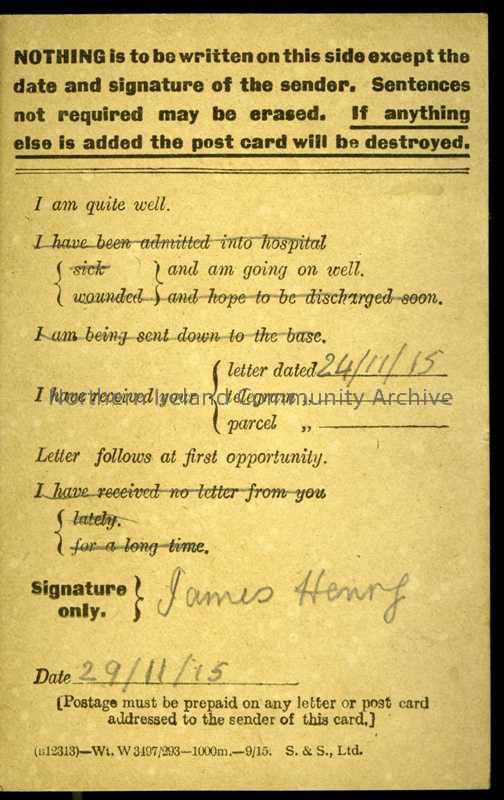 NOTHING is to be written on this side except the
date and signature of the sender. Sentences
not required may be erased. If anything
else is added the post card will be destroyed.
I am quite well.
I have been admitted into hospital
{ sick } and am going on well.
{ wounded } and hope to be discharged soon.
I am being sent down to the base.
letter dated 24/11/15
I have received your { telegram „
parcel „
Northern Ireland Community Archive
Letter follows at first opportunity.
I have received no letter from you
{ lately.
{ for a long time.
Signature only. } James Henry
Date 29/11/15
[Postage must be prepaid on any letter or post card
addressed to the sender of this card.]
(B12313)—Wt. W3497/293—1000m.—9/15. S. & S., Ltd.